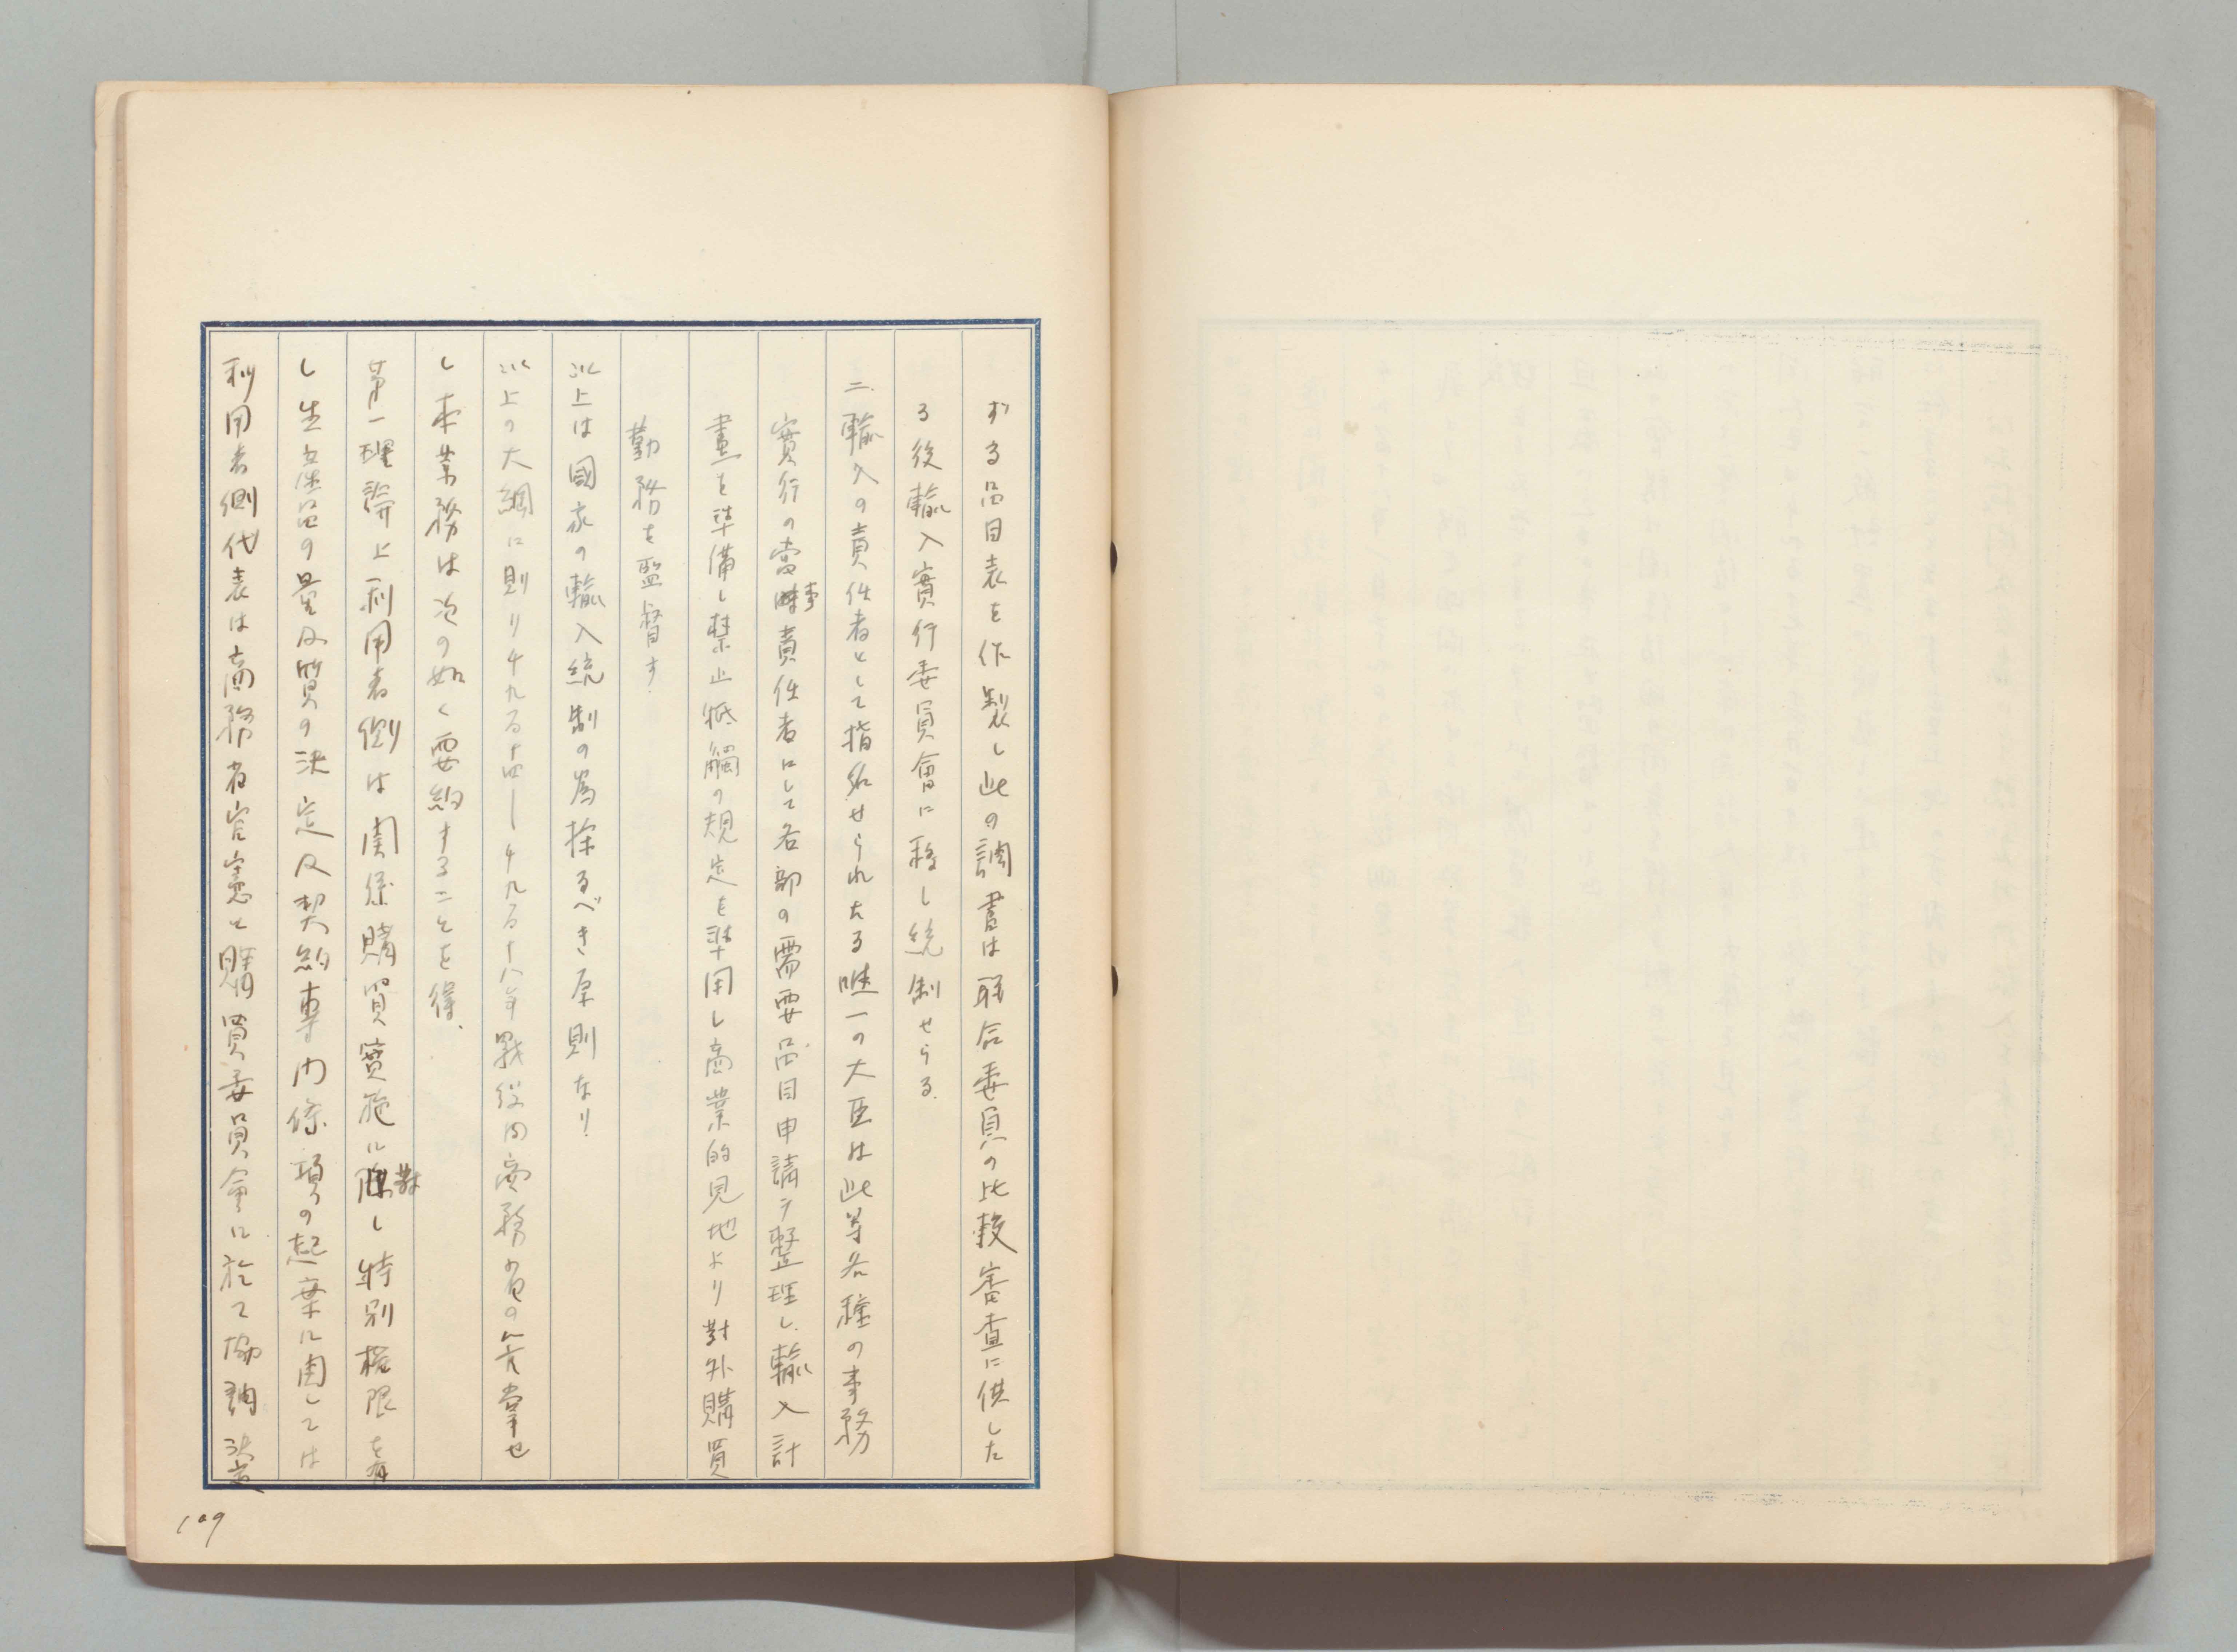 ずる品目表を作製し此の調書は聯合委員の比較審査に供した
る後輸入實行委員會に移し統制せらる.
二.輸入の責任者として指名せられたる唯一の大臣は此等各種の事務
實行の當事責任者にして各部の需要品目申請ヲ整理し.輸入計
畫を準備し禁止抵觸の規定を準用し商業的見地より對外購買
勤務を監督す.
以上は國家の輸入統制の為採るべき原則なり.
以上の大綱に則り千九百十四―千九百十八年戰役間商務省の管掌せ
し本業務は次の如く要約することを得.
第一理論上利用者側は関係購買實施に對し特別権限を有
し生産品の量及質の決定及契約專門條項の起案に関しては
利用者側代表は商務省官憲と購買委員會に於て協調決定
109